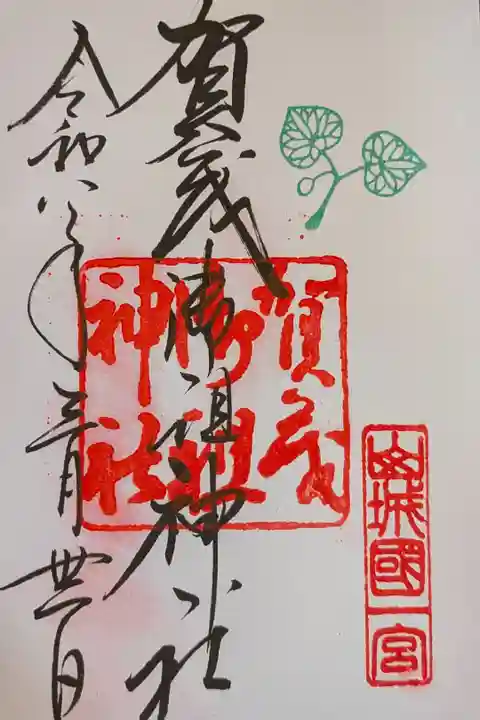 山城國一宮
賀茂御祖神社
賀茂
御祖
神社
令和八年三月日